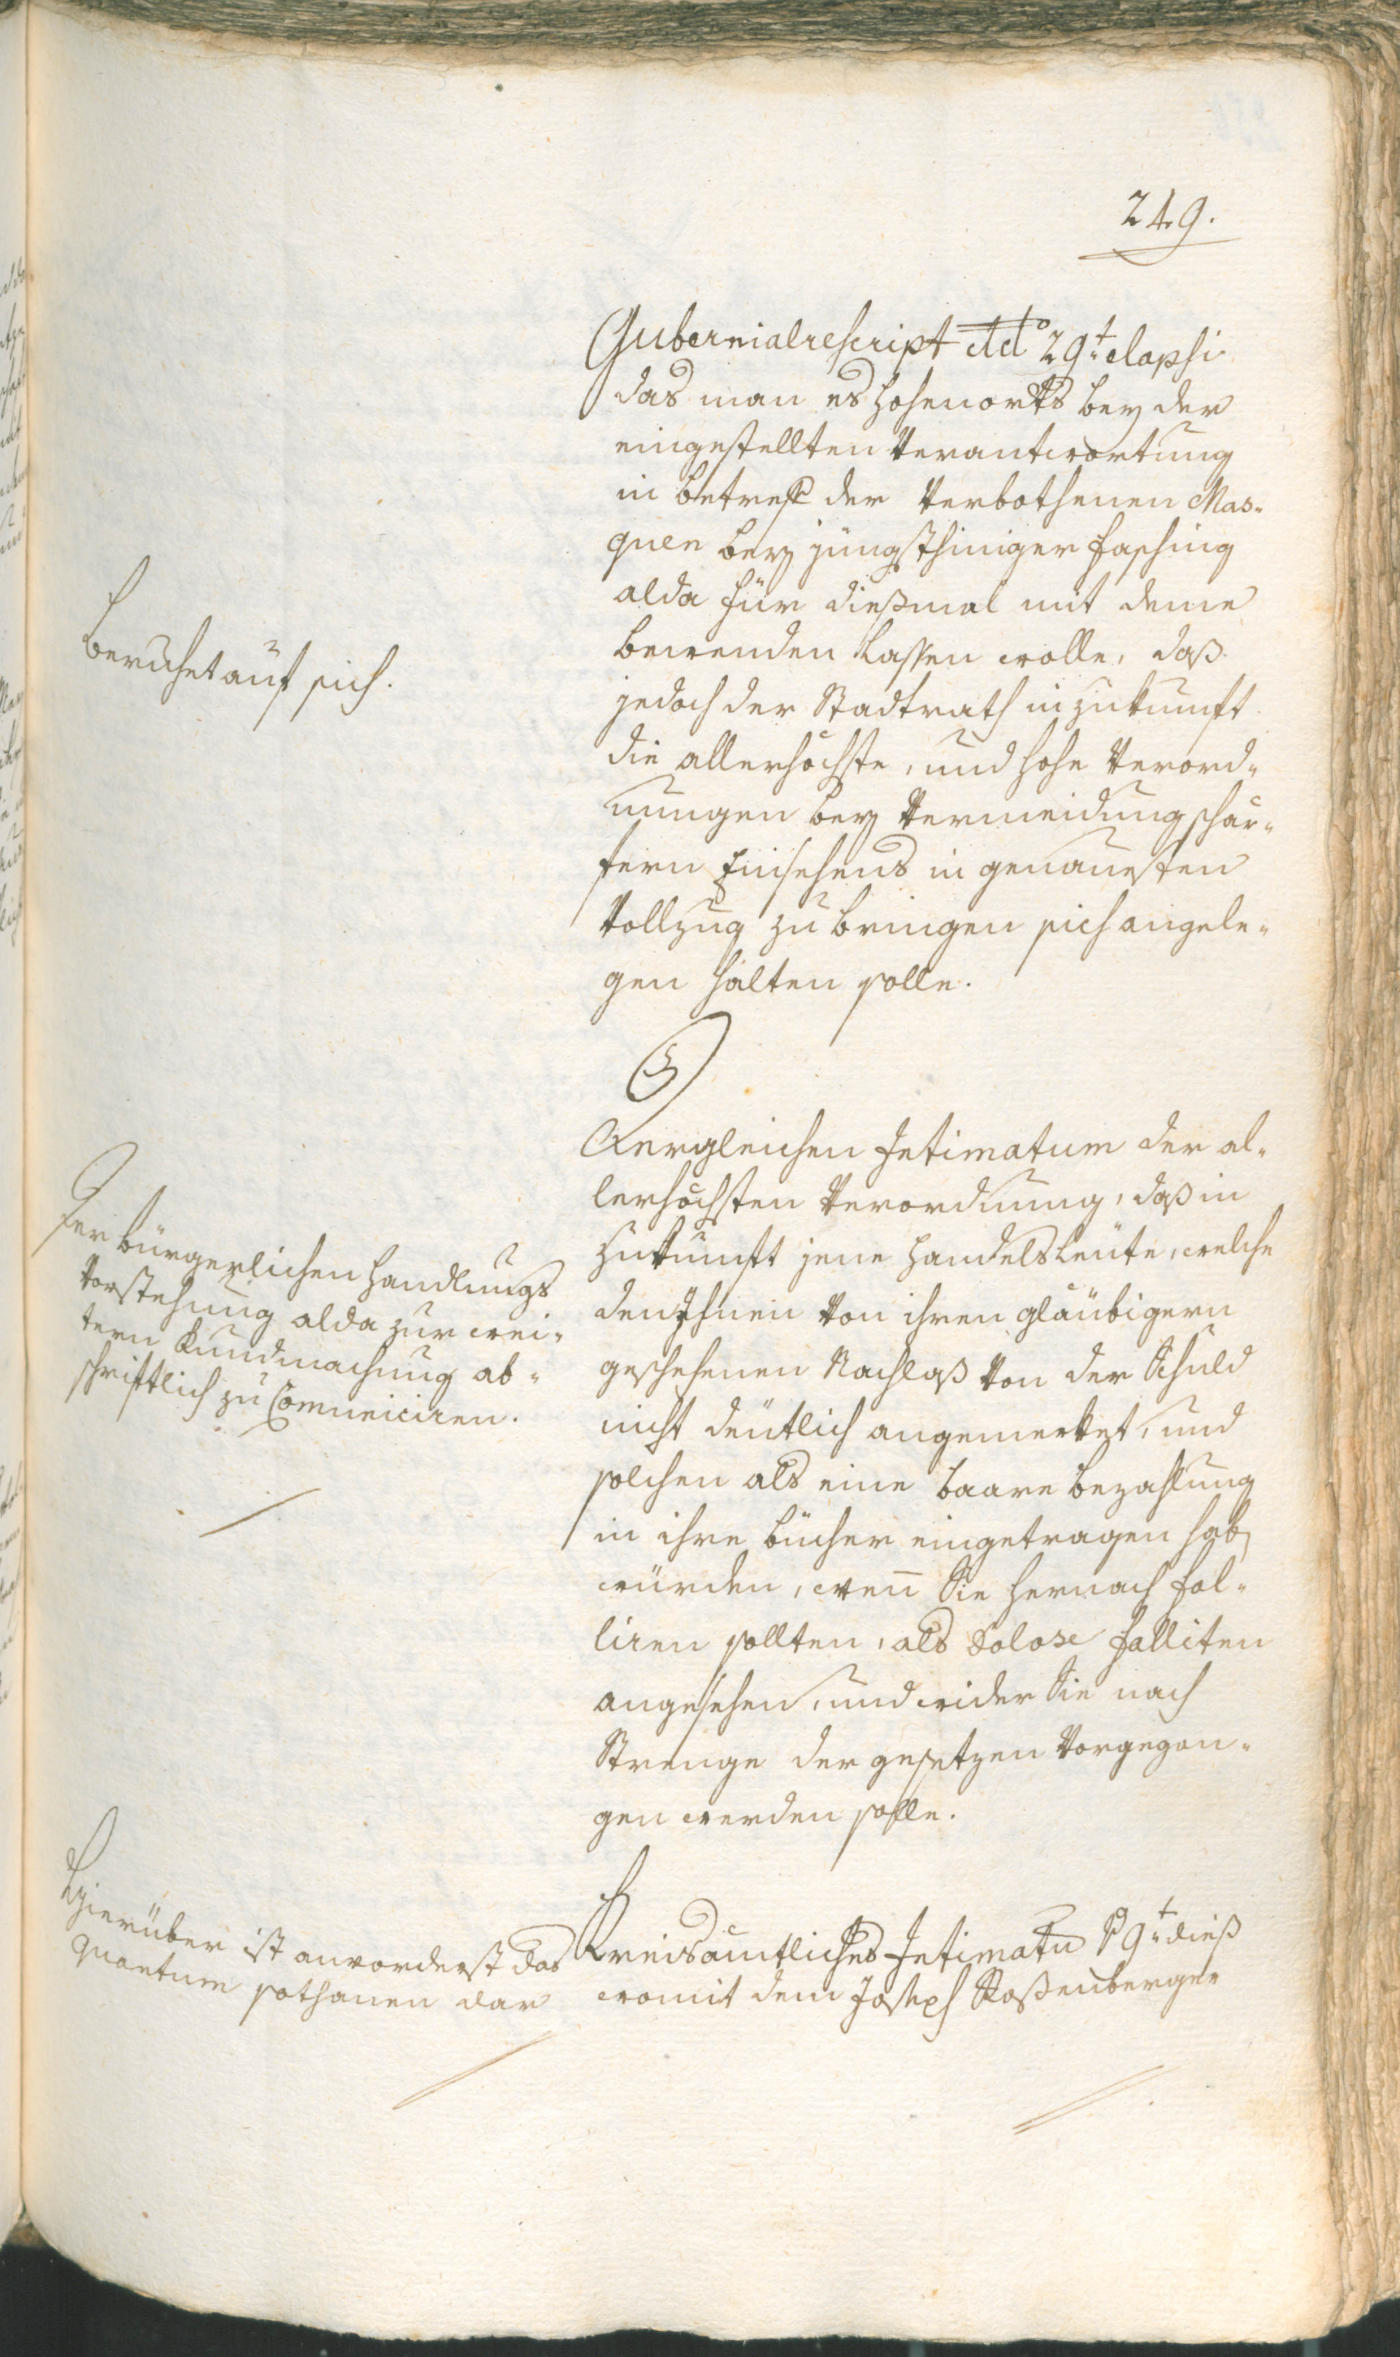 249.
Gubernialrescript ddo 29t elapsi
das man es hohenorts bey der
eingestellten Verantwortung
in betref der Verbothenen Mas-
quen bey jüngsthiniger fasching
alda für dießmal mit deme
bewenden lassen wolle, daß
jedoch der Stadtrath in zukunft
die allerhöchste, und hohe Verord-
nungen bey Vermeidung schär-
fern Einsehens in genauesten
Vollzug zu bringen sich angele-
gen halten solle.
Beruhet auf sich.
Dergleichen Intimatum der al-
lerhöchsten Verordnung, daß in
zukunft jene handelsleüte, welche
den Ihnen Von ihren gläubigern
geschehenen Nachlaß Von der Schuld
nicht deütlich angemerket, und
solchen als eine baare bezahlung
in ihre bücher eingetragen hab
würden, wen̄ Sie hernach fal-
liren sollten, als dolose falliten
angesehen, und wider Sie nach
Strenge der gesetzen Vorgegan-
gen werden solle.
Der bürgerlichen handlungs
Vorstehung alda zur wei-
tern kundmachung ab-
schriftlich zu Comuniciren.
Kreisämtliches Intimatu 9t dieß
womit dem Joseph Roßenberger
Hierüber ist anvorderst das
quantum sothanen dar